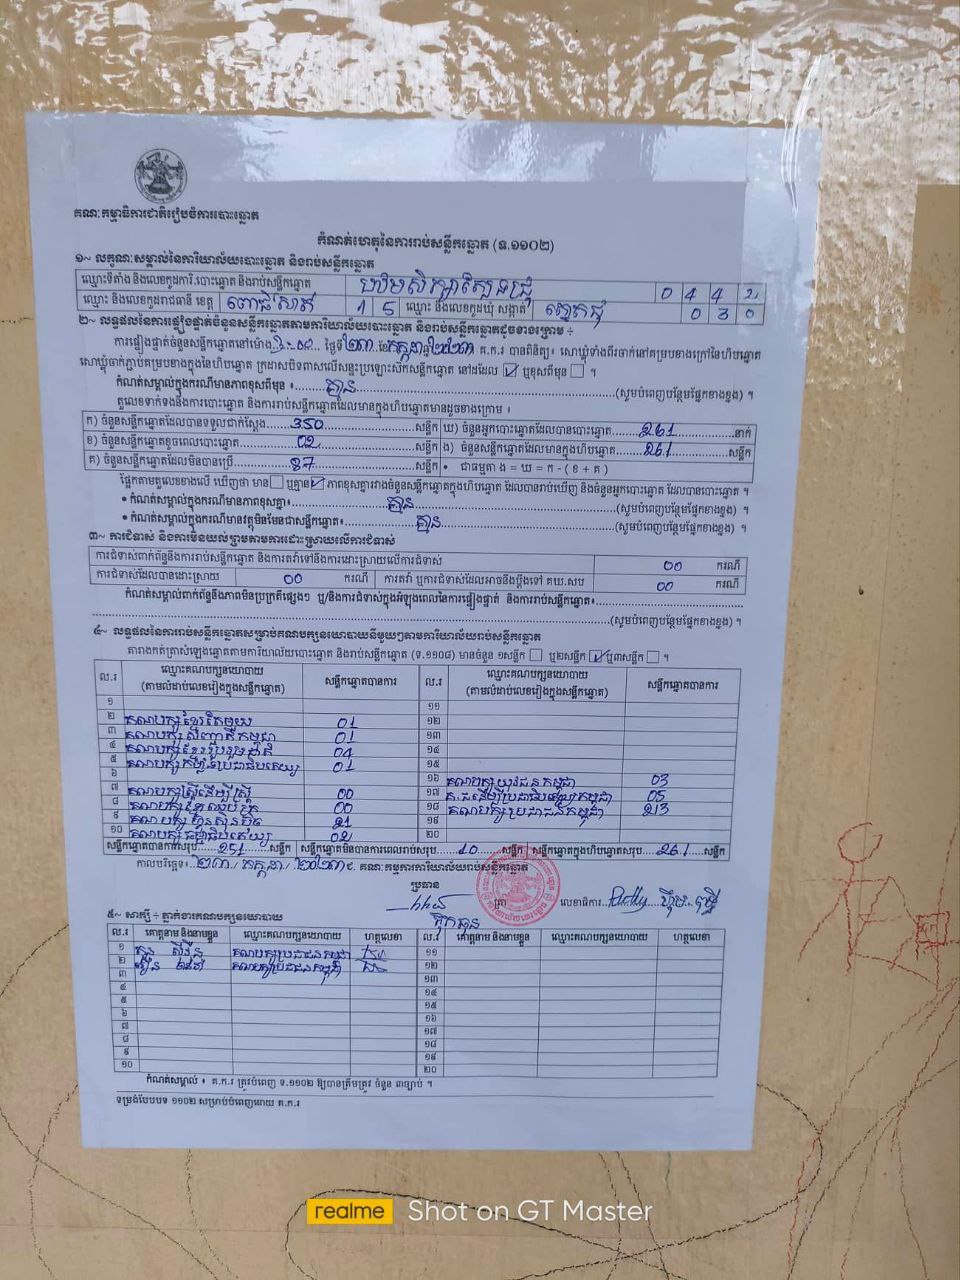 គណៈកម្មាធិការជាតិរៀបចំការបោះឆ្នោត
កំណត់ហេតុនៃការរាប់សន្លឹកឆ្នោត (ទ.១១០២)
១~ លក្ខណៈសម្គាល់នៃការិយាល័យបោះឆ្នោត និងរាប់សន្លឹកឆ្នោត
ឈ្មោះទីតាំង និងលេខកូដការិ.បោះឆ្នោត និងរាប់សន្លឹកឆ្នោត 0 4 4 2
ឈ្មោះ និងលេខកូដរាជធានី ខេត្ត ពោធិ៍សាត់ 1 5 ឈ្មោះ និងលេខកូដឃុំ សង្កាត់ 0 3 0
២~ លទ្ធផលនៃការផ្ទៀងផ្ទាត់ចំនួនសន្លឹកឆ្នោតតាមការិយាល័យបោះឆ្នោត និងរាប់សន្លឹកឆ្នោតដូចខាងក្រោម ÷
ការផ្ទៀងផ្ទាត់ចំនួនសន្លឹកឆ្នោតនៅម៉ោង ថ្ងៃទី២៣ ខែកក្កដា ឆ្នាំ២០២៣ គ.ក.រ បានពិនិត្យ៖ សោឃ្លុំទាំងពីរចាក់នៅគម្របខាងក្រៅនៃហិបឆ្នោត
សោឃ្លុំចាក់ភ្ជាប់គម្របខាងក្នុងនៃហិបឆ្នោត ក្រដាសបិទពាសលើសន្ទះប្រឡោះស៊កសន្លឹកឆ្នោត នៅដដែល ☑ ឬខុសពីមុន ☐ ។
កំណត់សម្គាល់ក្នុងករណីមានភាពខុសពីមុន ៖ គ្មាន (សូមបំពេញបន្ថែមផ្នែកខាងខ្នង) ។
តួលេខទាក់ទងនឹងការបោះឆ្នោត និងការរាប់សន្លឹកឆ្នោតដែលមានក្នុងហិបឆ្នោតមានដូចខាងក្រោម ៖
ក) ចំនួនសន្លឹកឆ្នោតដែលបានទទួលជាក់ស្តែង 350 សន្លឹក ឃ) ចំនួនអ្នកបោះឆ្នោតដែលបានបោះឆ្នោត 261 នាក់
ខ) ចំនួនសន្លឹកឆ្នោតខូចពេលបោះឆ្នោត 02 សន្លឹក ង) ចំនួនសន្លឹកឆ្នោតដែលមានក្នុងហិបឆ្នោត 261 សន្លឹក
គ) ចំនួនសន្លឹកឆ្នោតដែលមិនបានប្រើ 87 សន្លឹក • ជាធម្មតា ង = ឃ = ក - ( ខ + គ )
ផ្អែកតាមតួលេខខាងលើ ឃើញថា មាន ☐ ឬគ្មាន ☑ ភាពខុសគ្នារវាងចំនួនសន្លឹកឆ្នោតក្នុងហិបឆ្នោត ដែលបានរាប់ឃើញ និងចំនួនអ្នកបោះឆ្នោត ដែលបានបោះឆ្នោត ។
• កំណត់សម្គាល់ក្នុងករណីមានភាពខុសគ្នា៖ គ្មាន (សូមបំពេញបន្ថែមផ្នែកខាងខ្នង) ។
• កំណត់សម្គាល់ក្នុងករណីមានវត្ថុមិនមែនជាសន្លឹកឆ្នោត៖ គ្មាន (សូមបំពេញបន្ថែមផ្នែកខាងខ្នង) ។
៣~ ការជំទាស់ និងការមិនយល់ព្រមតាមការដោះស្រាយលើការជំទាស់
ការជំទាស់ពាក់ព័ន្ធនឹងការរាប់សន្លឹកឆ្នោត និងការតវ៉ាទៅនឹងការដោះស្រាយលើការជំទាស់ 00 ករណី
ការជំទាស់ដែលបានដោះស្រាយ 00 ករណី ការតវ៉ា ឬការជំទាស់ដែលអាចនឹងប្តឹងទៅ គឃ.សប 00 ករណី
កំណត់សម្គាល់ពាក់ព័ន្ធនឹងភាពមិនប្រក្រតីផ្សេងៗ ឬ/និងការជំទាស់ក្នុងអំឡុងពេលនៃការផ្ទៀងផ្ទាត់ និងការរាប់សន្លឹកឆ្នោត៖
(សូមបំពេញបន្ថែមផ្នែកខាងខ្នង) ។
៤~ លទ្ធផលនៃការរាប់សន្លឹកឆ្នោតសម្រាប់គណបក្សនយោបាយនីមួយៗតាមការិយាល័យរាប់សន្លឹកឆ្នោត
តារាងកត់ត្រាសំឡេងឆ្នោតតាមការិយាល័យបោះឆ្នោត និងរាប់សន្លឹកឆ្នោត (ទ.១១០៨) មានចំនួន ១សន្លឹក ☐ ឬ២សន្លឹក ☑ ឬ៣សន្លឹក ☐ ។
ល.រ ឈ្មោះគណបក្សនយោបាយ (តាមលំដាប់លេខរៀងក្នុងសន្លឹកឆ្នោត) សន្លឹកឆ្នោតបានការ ល.រ ឈ្មោះគណបក្សនយោបាយ (តាមលំដាប់លេខរៀងក្នុងសន្លឹកឆ្នោត) សន្លឹកឆ្នោតបានការ
១ ១១
២ គណបក្សខ្មែរតែមួយ 01 ១២
៣ គណបក្សសញ្ជាតិកម្ពុជា 01 ១៣
៤ គណបក្សខ្មែររួបរួមជាតិ 04 ១៤
៥ គណបក្សកម្លាំងប្រជាធិបតេយ្យ 01 ១៥
៦ ១៦ គណបក្សយុវជនកម្ពុជា 03
៧ គណបក្សស្ត្រីដើម្បីស្ត្រី 00 ១៧ គ.ដើម្បីប្រជាធិបតេយ្យកម្ពុជា 05
៨ 00 ១៨ គណបក្សប្រជាជនកម្ពុជា 213
៩ គណបក្សហ្វ៊ុនស៊ិនប៉ិច 21 ១៩
១០ គណបក្សធម្មាធិបតេយ្យ 02 ២០
សន្លឹកឆ្នោតបានការសរុប 251 សន្លឹក សន្លឹកឆ្នោតមិនបានការពេលរាប់សរុប 10 សន្លឹក សន្លឹកឆ្នោតក្នុងហិបឆ្នោតសរុប 261 សន្លឹក
កាលបរិច្ឆេទ៖ ២៣ / កក្កដា / ២០២៣ ជ. គណៈកម្មការការិយាល័យរាប់សន្លឹកឆ្នោត
ប្រធាន
ត្រា លេខាធិការ
៥~ សាក្សី ÷ ភ្នាក់ងារគណបក្សនយោបាយ
ល.រ គោត្តនាម និងនាមខ្លួន ឈ្មោះគណបក្សនយោបាយ ហត្ថលេខា ល.រ គោត្តនាម និងនាមខ្លួន ឈ្មោះគណបក្សនយោបាយ ហត្ថលេខា
១ គណបក្សប្រជាជនកម្ពុជា ១១
២ គណបក្សប្រជាជនកម្ពុជា ១២
៣ ១៣
៤ ១៤
៥ ១៥
៦ ១៦
៧ ១៧
៨ ១៨
៩ ១៩
១០ ២០
កំណត់សម្គាល់ ៖ គ.ក.រ ត្រូវបំពេញ ទ.១១០២ ឱ្យបានត្រឹមត្រូវ ចំនួន ៣ច្បាប់ ។
ទម្រង់បែបបទ ១១០២ សម្រាប់បំពេញដោយ គ.ក.រ
realme Shot on GT Master